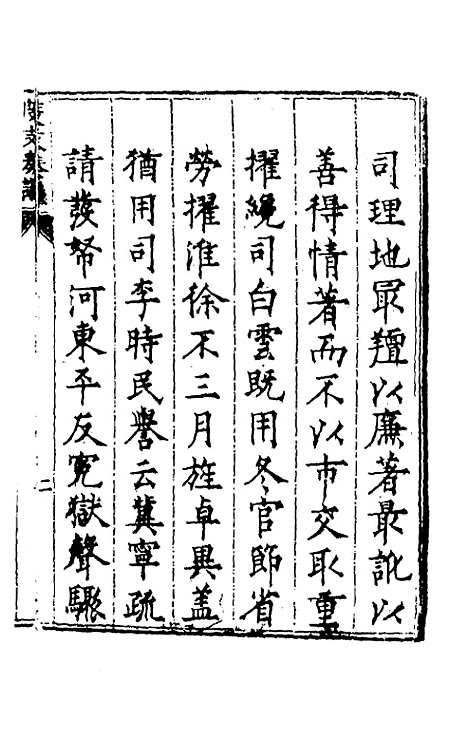 司理地最羶以廉著最訛以
善得情著而不以市交取重
擢繩司白雲既用冬官節省
勞擢淮徐不三月旌卓異蓋
猶用司李時民譽云冀寧疏
請發帑河東平反冤獄聲驟
二